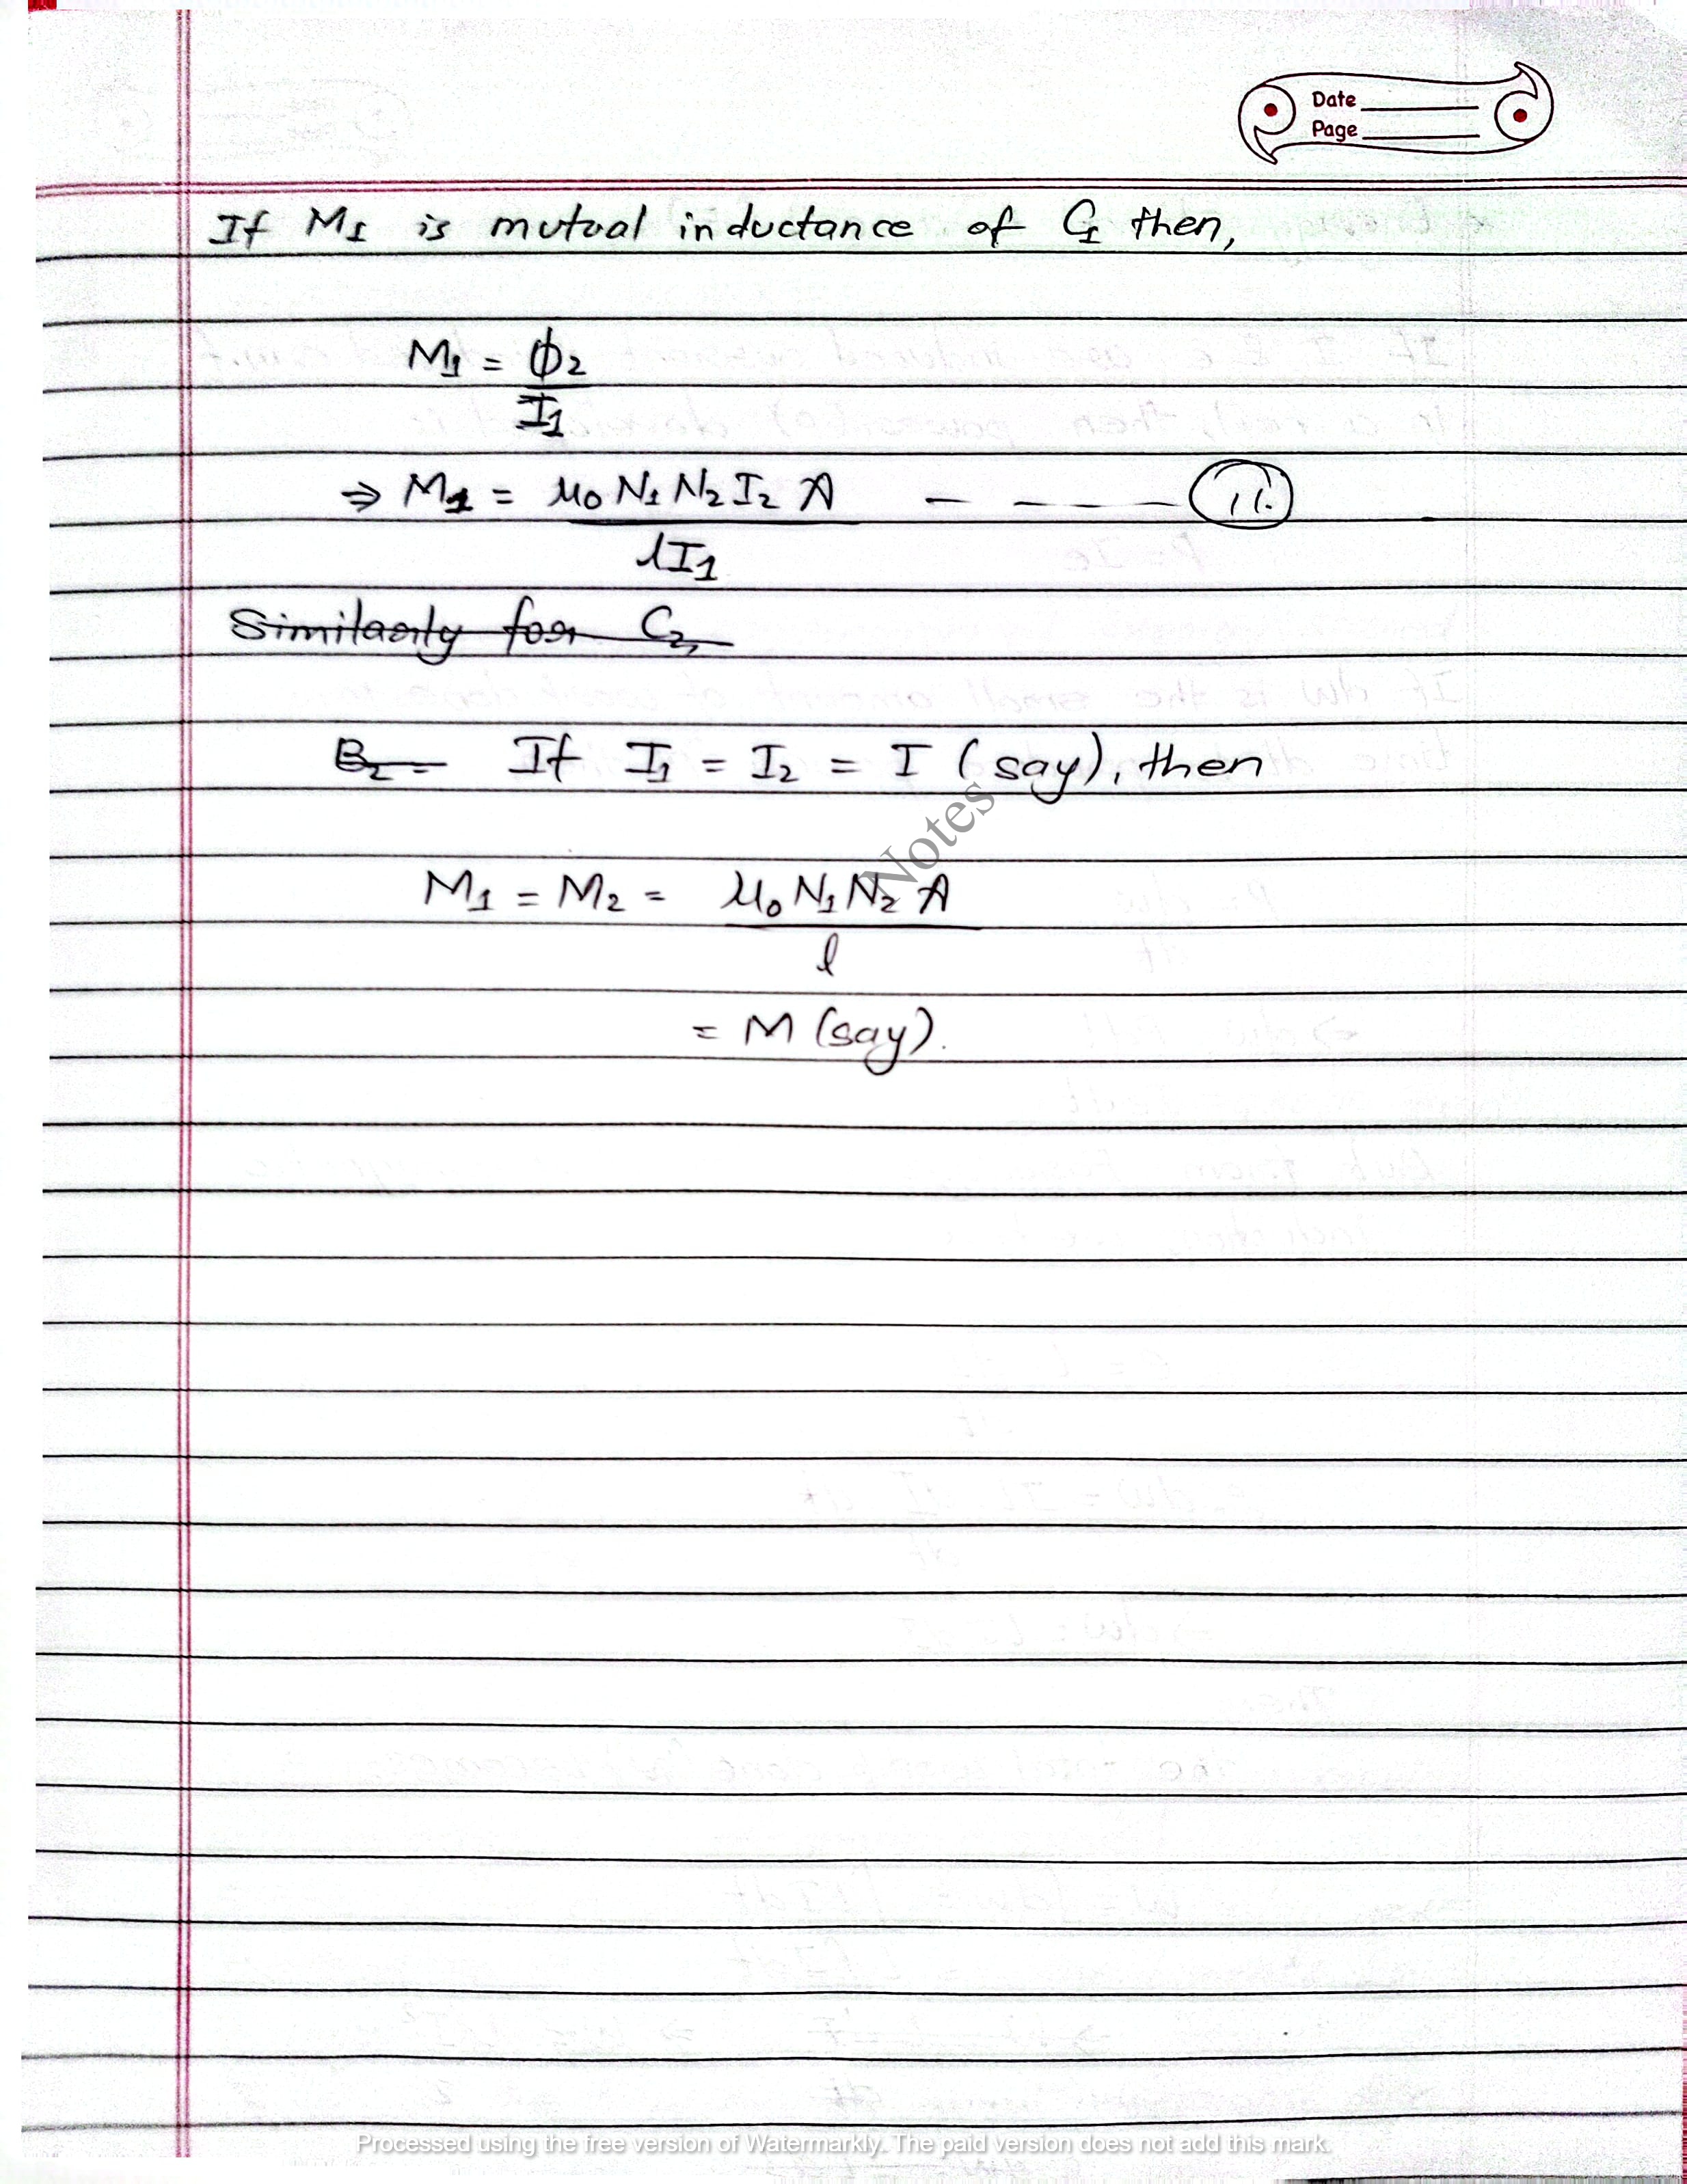 Date
Page
If M1 is mutual inductance of C1 then,
M1 = ϕ2
I1
⇒ M1 = μ0 N1 N2 I2 A - - - - - (ii.)
lI1
Similarly for C2,
B2 = If I1 = I2 = I (say), then
Notes
M1 = M2 = μ0 N1 N2 A
l
= M (say).
Processed using the free version of Watermarkly. The paid version does not add this mark.